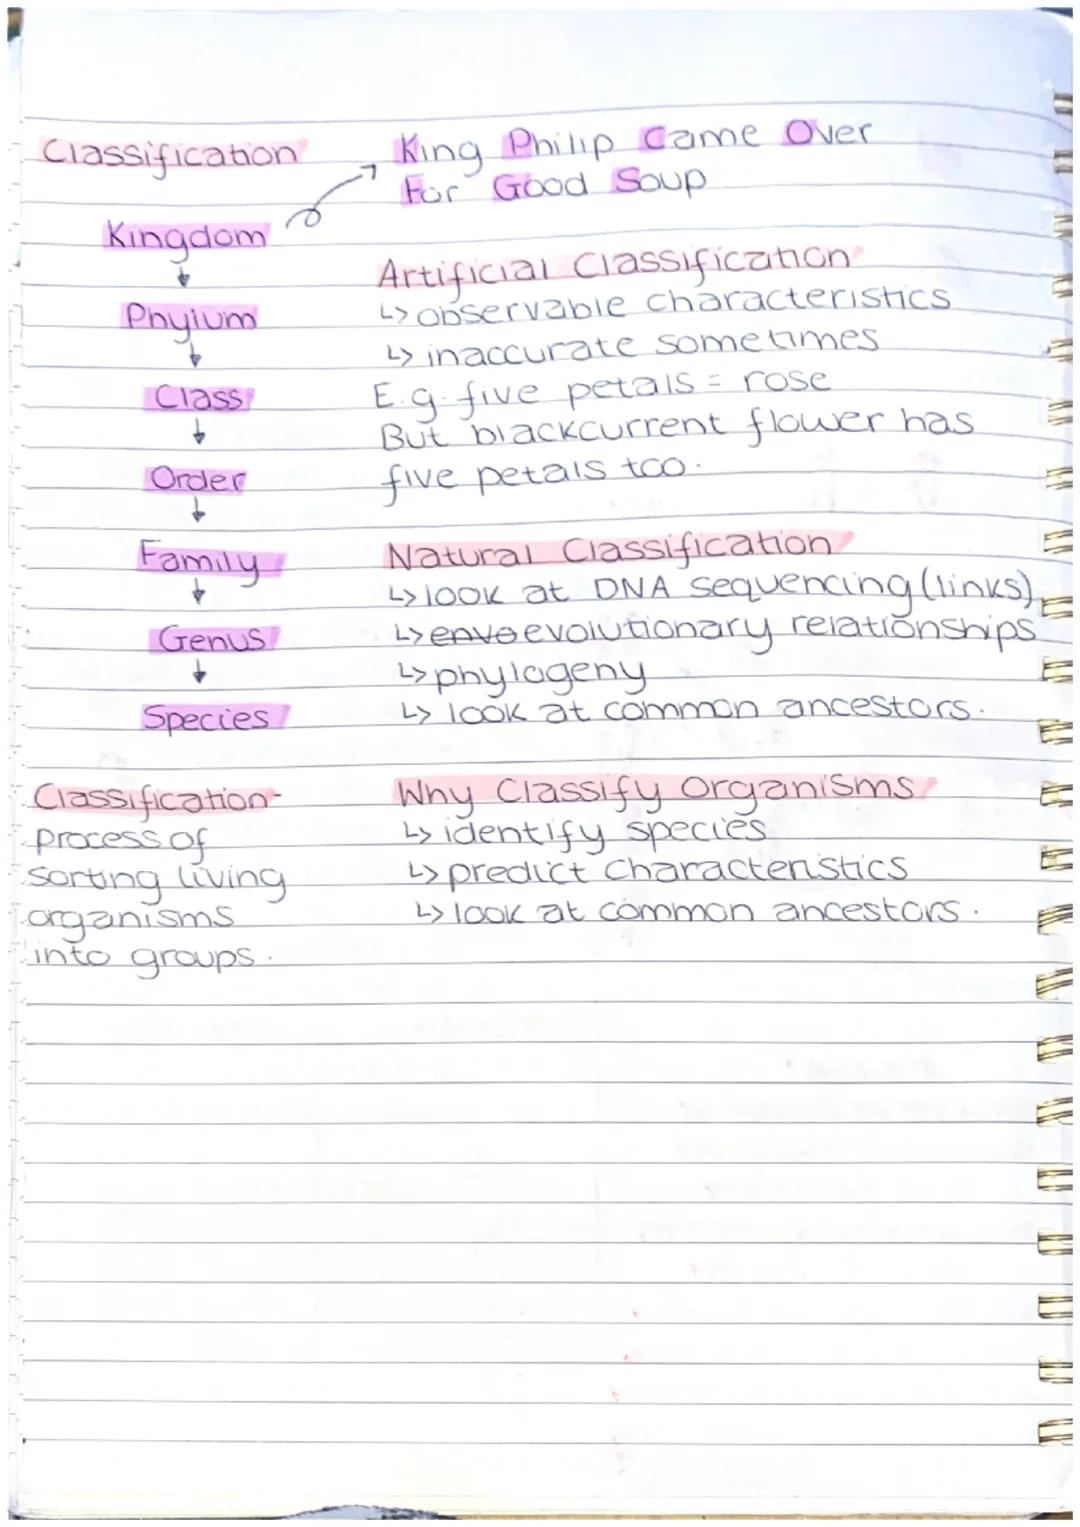 Classification
King Philip Came Over
For Good Soup
Kingdom
↓
Phylum
↓
Class
↓
Order
↓
Family
↓
Genus
↓
Species
Artificial Classification
↳ observable characteristics
↳ inaccurate sometimes
E.g. five petals = rose
But blackcurrent flower has
five petals too.
Natural Classification
↳ look at DNA sequencing (links)
↳ envo evolutionary relationships
↳ phylogeny
↳ look at common ancestors.
Classification-
process of
sorting living
organisms
into groups.
Why Classify Organisms
↳ identify species
↳ predict characteristics
↳ look at common ancestors.